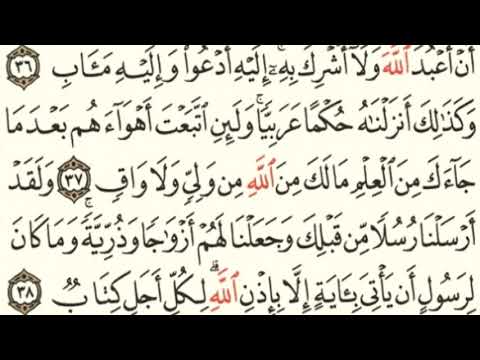 أَنْ أَعْبُدَ ٱللَّهَ وَلَآ أُشْرِكَ بِهِۦٓۚ إِلَيْهِ أَدْعُوا۟ وَإِلَيْهِ مَـَٔابِ ٣٦
وَكَذَٰلِكَ أَنزَلْنَـٰهُ حُكْمًا عَرَبِيًّاۚ وَلَئِنِ ٱتَّبَعْتَ أَهْوَآءَهُم بَعْدَمَا
جَآءَكَ مِنَ ٱلْعِلْمِ مَا لَكَ مِنَ ٱللَّهِ مِن وَلِىٍّ وَلَا وَاقٍ ٣٧ وَلَقَدْ
أَرْسَلْنَا رُسُلًا مِّن قَبْلِكَ وَجَعَلْنَا لَهُمْ أَزْوَٰجًا وَذُرِّيَّةًۚ وَمَا كَانَ
لِرَسُولٍ أَن يَأْتِىَ بِـَٔايَةٍ إِلَّا بِإِذْنِ ٱللَّهِۗ لِكُلِّ أَجَلٍ كِتَابٌ ٣٨